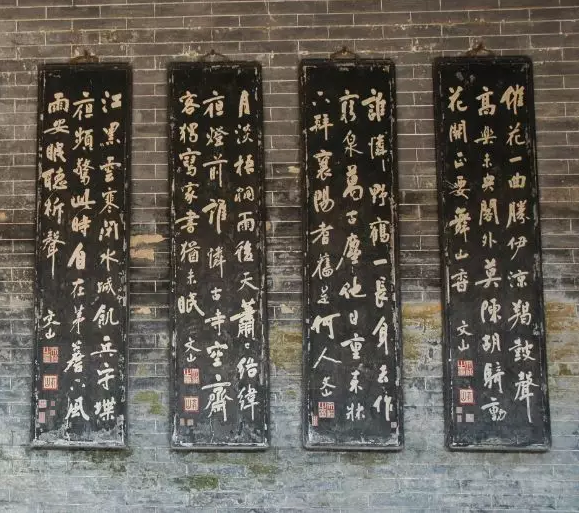 催花一曲勝伊涼羯鼓聲
高樂未央閣外莫陳胡騎動
花開正要舞山香
文山
誰憐野鶴一長身去作
窮泉萬古塵他日重來牀
下拜襄陽耆舊是何人
文山
月淡梧桐雨後天蕭〻絡緯
夜燈前誰憐古寺空齋
客獨寫家書猶未眠
文山
江黑雲寒閉水城飢兵守堞
夜頻驚此時自在茅簷下風
雨安眠聽柝聲
文山